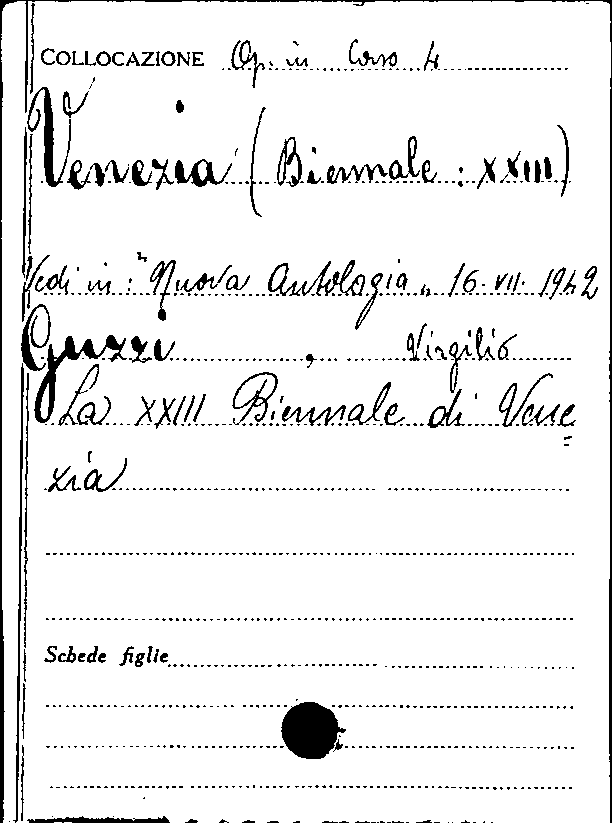 COLLOCAZIONE Op. in Corso 4
Venezia (Biennale : XXIII)
Vedi in : "Nuova Antologia„ 16. VII. 1942
Guzzi , Virgilio
La XXIII Biennale di Vene=
zia
Schede figlie